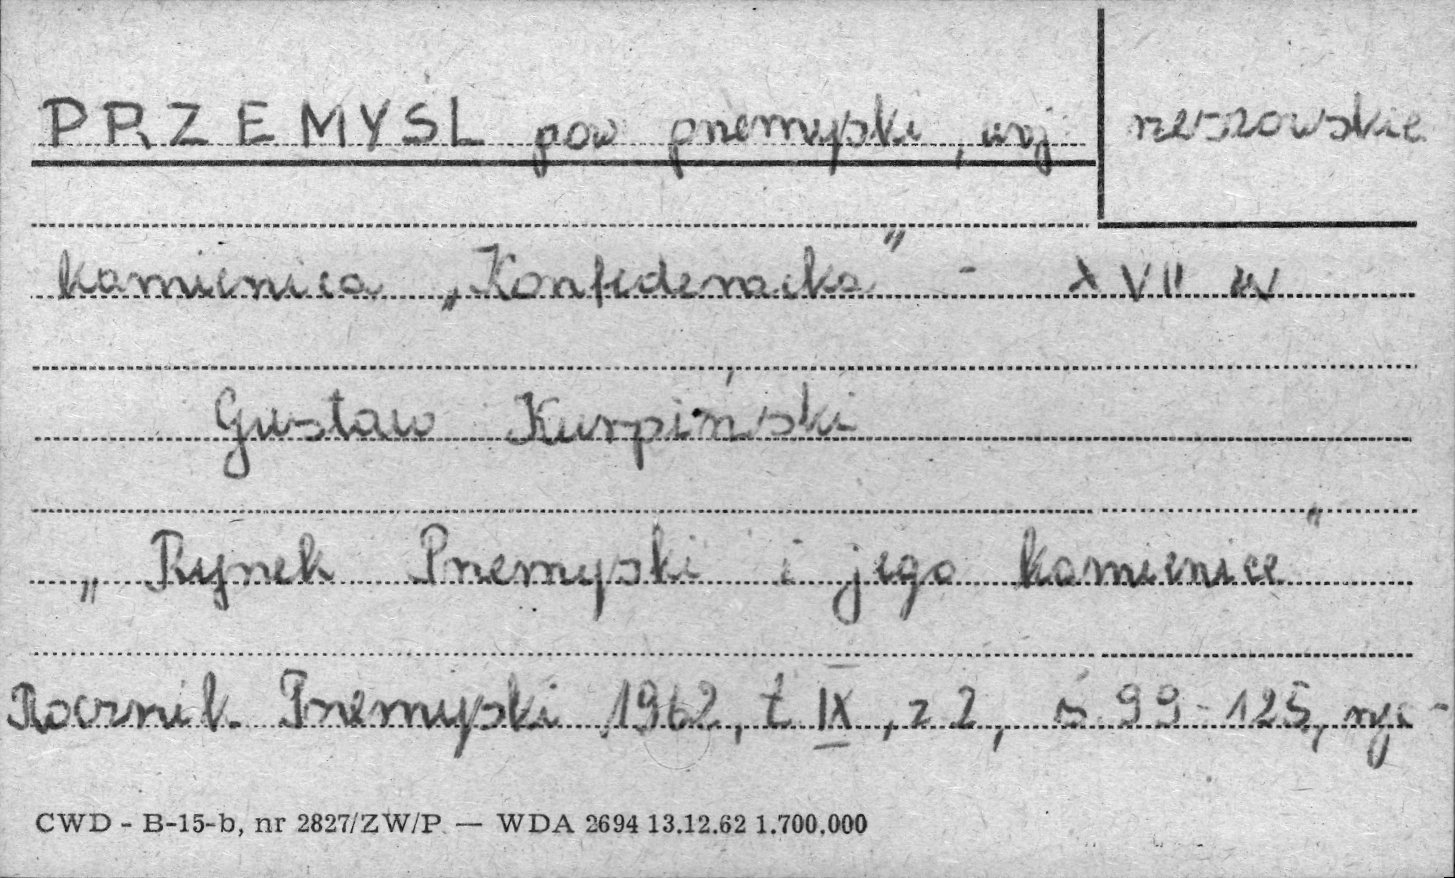 PRZEMYŚL pow przemyski, woj rzeszowskie
kamienica „Konfederacka" - XVII w
Gustaw Kurpiński
„Rynek Przemyski i jego kamienice"
Rocznik Przemyski 1962, t IX, z 2, s 99-125, ryc-
CWD - B-15-b, nr 2827/ZW/P — WDA 2694 13.12.62 1.700.000